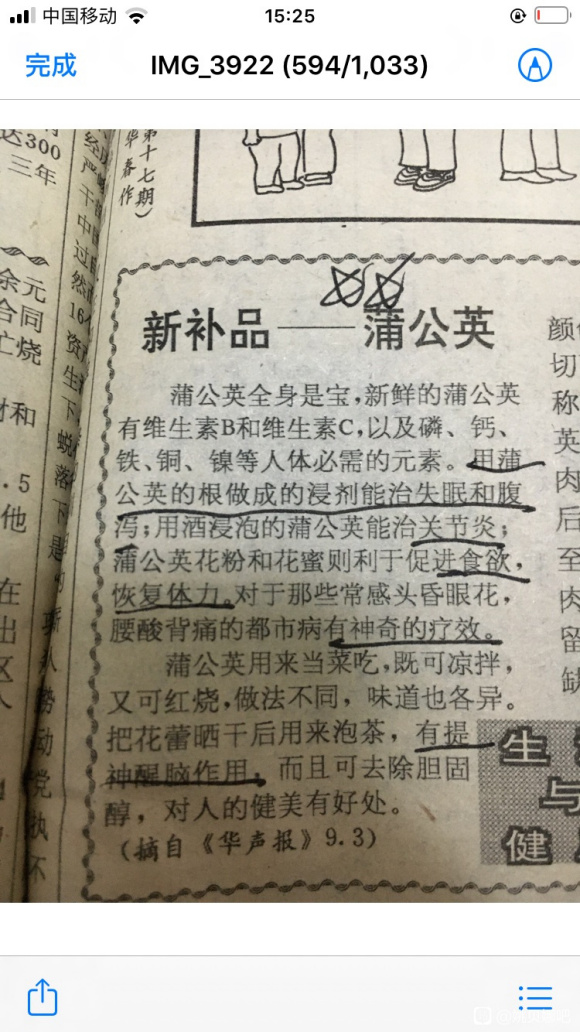 中国移动
15:25
完成
IMG_3922 (594/1,033)
达300
三年
余元
合同
忙烧
材和
.5
他
在
出
第十七期)
华春作
新补品——蒲公英
蒲公英全身是宝,新鲜的蒲公英
有维生素B和维生素C,以及磷、钙、
铁、铜、镍等人体必需的元素。用蒲
公英的根做成的浸剂能治失眠和腹
泻;用酒浸泡的蒲公英能治关节炎;
蒲公英花粉和花蜜则利于促进食欲,
恢复体力。对于那些常感头昏眼花,
腰酸背痛的都市病有神奇的疗效。
蒲公英用来当菜吃,既可凉拌,
又可红烧,做法不同,味道也各异。
把花蕾晒干后用来泡茶,有提
神醒脑作用,而且可去除胆固
醇,对人的健美有好处。
(摘自《华声报》9.3)
颜
切
称
英
肉
后
至
肉
留
缺
生
与
健